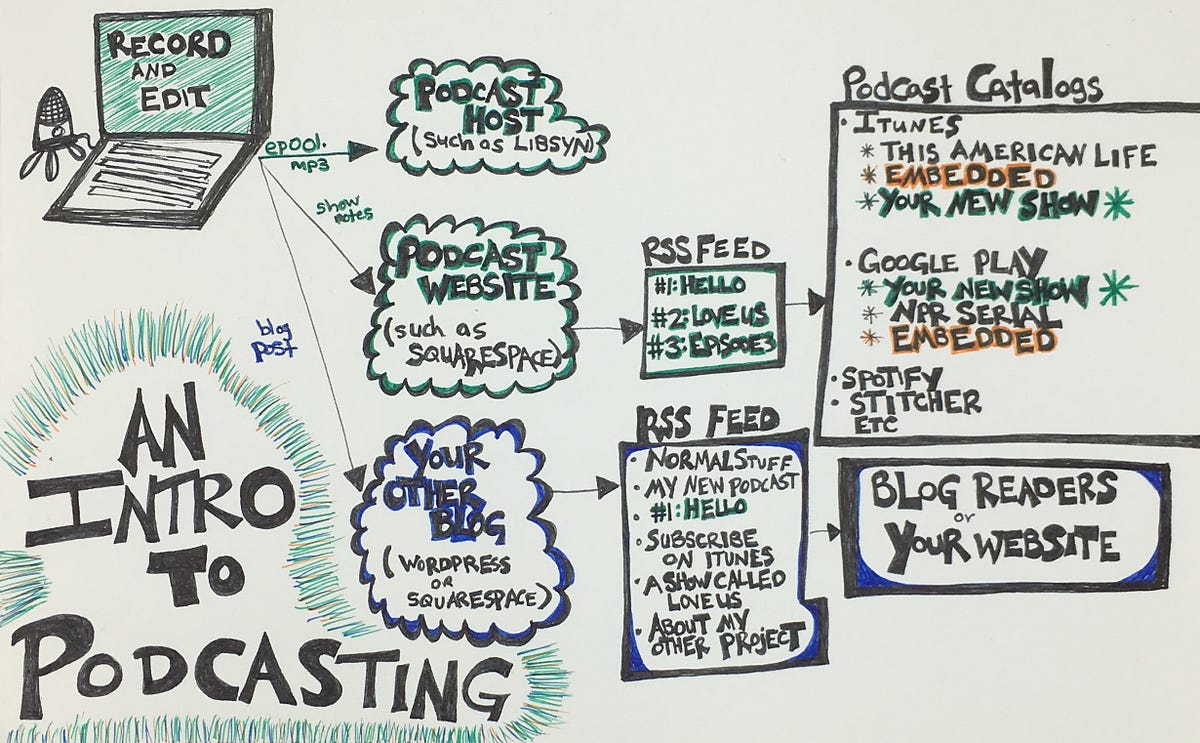 RECORD
AND
EDIT
ep001.
mp3
show
notes
blog
post
PODCAST
HOST
(such as LIBSYN)
PODCAST
WEBSITE
(such as
SQUARESPACE)
YOUR
OTHER
BLOG
(WORDPRESS
OR
SQUARESPACE)
RSS FEED
#1: HELLO
#2: LOVE US
#3: EPISODE3
RSS FEED
· NORMAL STUFF
· MY NEW PODCAST
· #1: HELLO
· SUBSCRIBE
ON ITUNES
· A SHOW CALLED
LOVE US
· ABOUT MY
OTHER PROJECT
Podcast Catalogs
· ITUNES
* THIS AMERICAN LIFE
* EMBEDDED
* YOUR NEW SHOW *
· GOOGLE PLAY
* YOUR NEW SHOW *
* NPR SERIAL
* EMBEDDED
· SPOTIFY
· STITCHER
ETC
BLOG READERS
or
YOUR WEBSITE
AN
INTRO
TO
PODCASTING